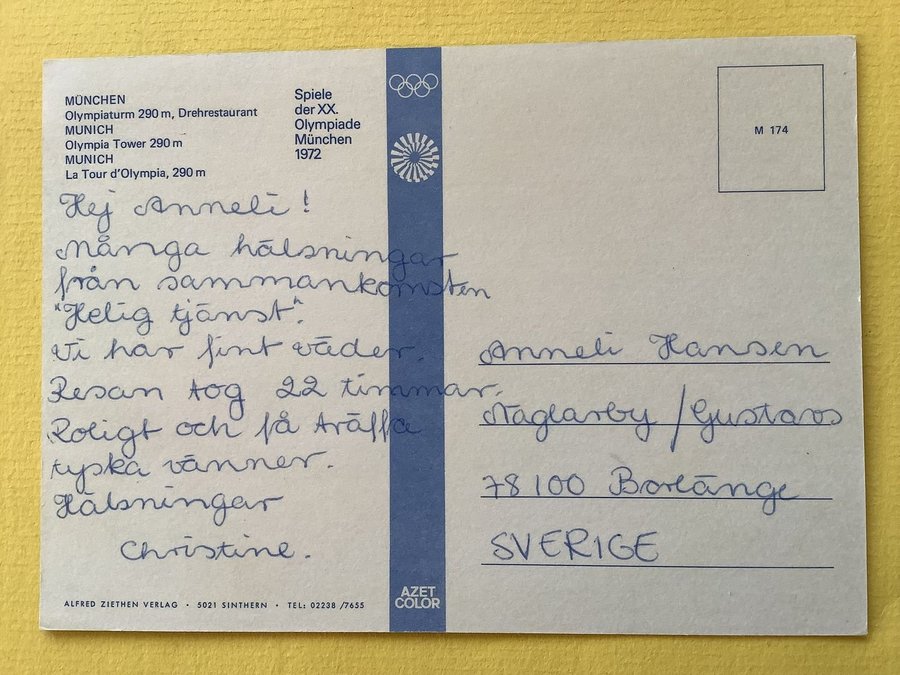 MÜNCHEN
Olympiaturm 290 m, Drehrestaurant
MUNICH
Olympia Tower 290 m
MUNICH
La Tour d'Olympia, 290 m
Spiele
der XX.
Olympiade
München
1972
M 174
Hej Anneli!
Många hälsningar
från sammankomsten
"Helig tjänst".
Vi har fint väder.
Resan tog 22 timmar.
Roligt och få träffa
tyska vänner.
Hälsningar
Christine.
Anneli Hansen
Naglarby / Gustavs
78100 Borlänge
SVERIGE
AZET
COLOR
ALFRED ZIETHEN VERLAG · 5021 SINTHERN · TEL: 02238 /7655